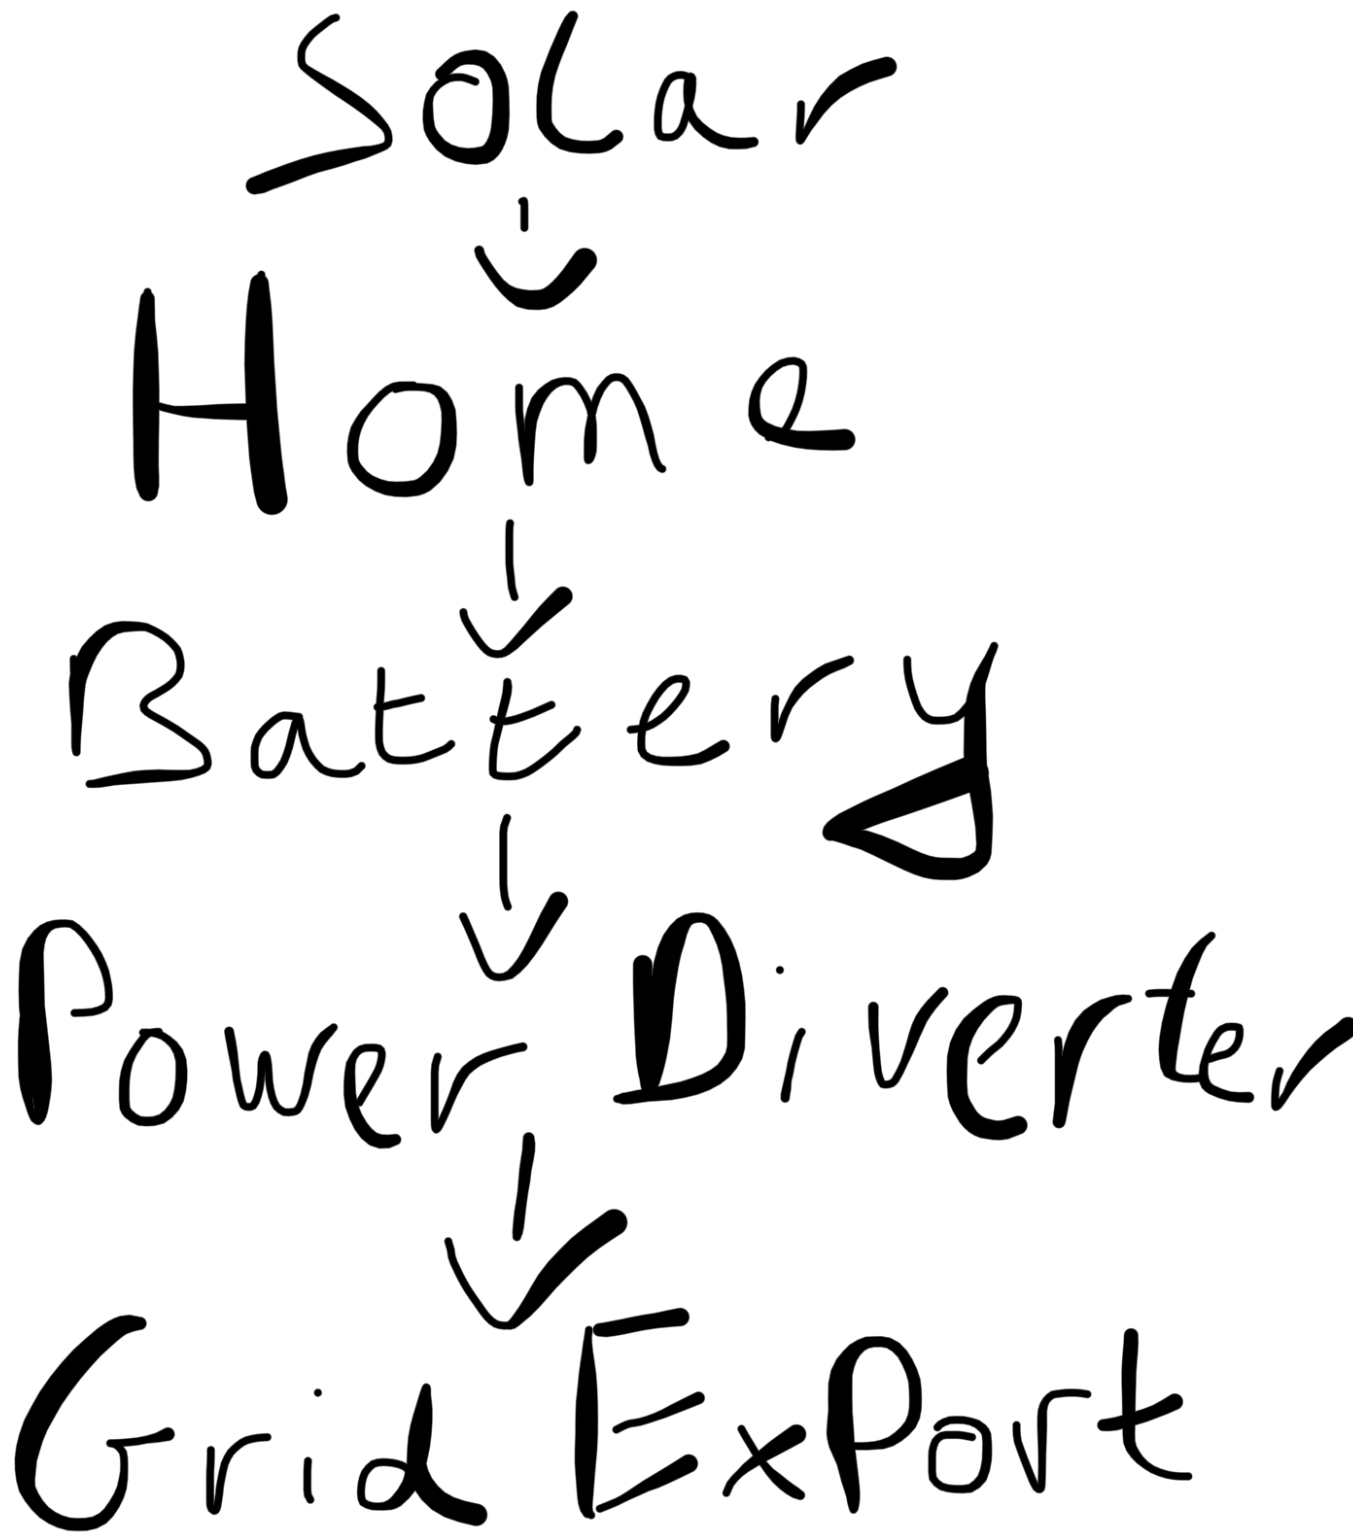 Solar
Home
Battery
Power Diverter
Grid Export